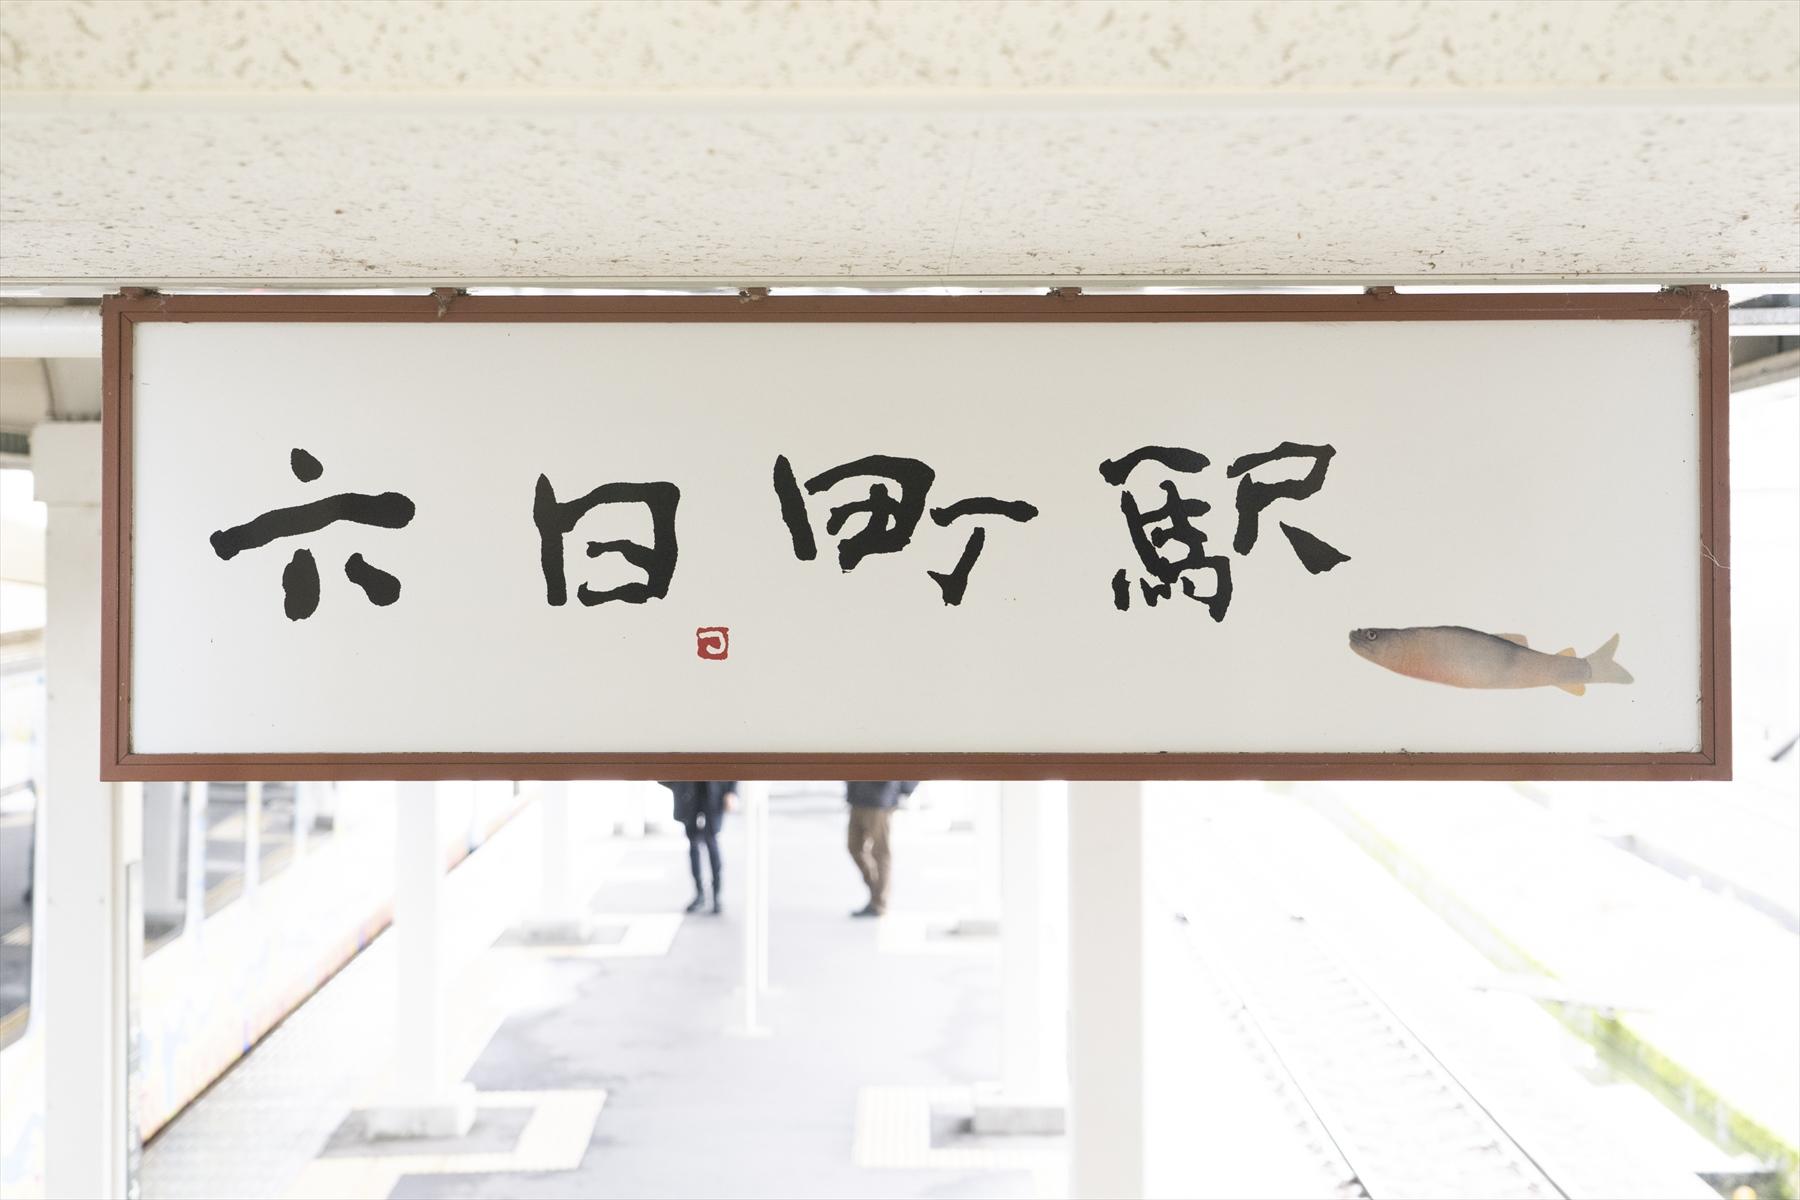 六日町駅